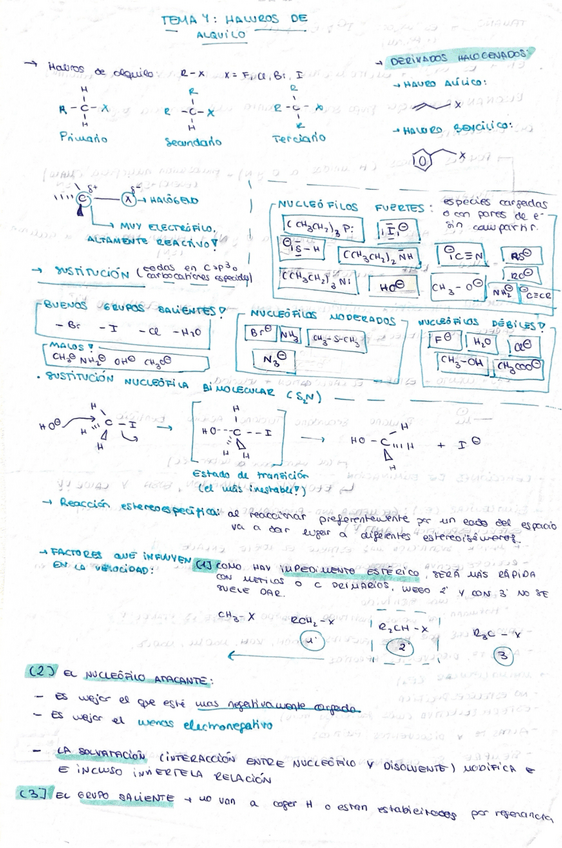 TEMA 4: HALUROS DE
ALQUILO
→ Haluros de alquilo R-X X = F, Cl, Br, I
→ DERIVADOS HALOGENADOS:
→ HALURO ALÍLICO:
X
→ HALURO BENCÍLICO:
X
H
R - C - X
H
Primario
R
R - C - X
H
Secundario
R
R - C - X
R
Terciario
C δ+ X δ- → HALÓGENO
→ MUY ELECTRÓFILO.
ALTAMENTE REACTIVO!
→ SUSTITUCIÓN (todas en Csp3 o
carbocationes especiales)
NUCLEÓFILOS FUERTES: especies cargadas
o con pares de e-
sin compartir.
(CH3CH2)3P: I⊖
⊖S-H (CH3CH2)2NH ⊖C≡N RS⊖
(CH3CH2)3N: HO⊖ CH3-O⊖ RO⊖ NH2⊖ ⊖C≡CR
BUENOS GRUPOS SALIENTES?
-Br -I -Cl -H2O
MALOS?
CH3⊖ NH2⊖ OH⊖ CH3O⊖
NUCLEÓFILOS MODERADOS
Br⊖ NH3 CH3-S-CH3
N3⊖
NUCLEÓFILOS DÉBILES?
F⊖ H2O Cl⊖
CH3-OH CH3COO⊖
. SUSTITUCIÓN NUCLEÓFILA BIMOLECULAR (SN2)
HO⊖ H C - I H H → H HO---C---I H H → HO - C H H H + I⊖
Estado de transición
(el más inestable?)
→ Reacción estereoespecífica: al reaccionar preferentemente por un lado del espacio
va a dar lugar a diferentes estereoisómeros.
→ FACTORES QUE INFLUYEN
EN LA VELOCIDAD:
(1) COMO HAY IMPEDIMENTO ESTÉRICO, SERÁ MÁS RÁPIDA
CON METILOS O C PRIMARIOS, LUEGO 2º Y CON 3º NO SE
SUELE DAR.
CH3-X RCH2-X R2CH-X R3C-X
1º 2º 3
(2) EL NUCLEÓFILO ATACANTE:
- Es mejor el que esté mas negativamente cargado
- Es mejor el menos electronegativo
- LA SOLVATACIÓN (INTERACCIÓN ENTRE NUCLEÓFILO Y DISOLVENTE) MODIFICA E
E INCLUSO INVIERTE LA RELACIÓN
(3) EL GRUPO SALIENTE → no van a coger H o estan estabilizados por resonancia